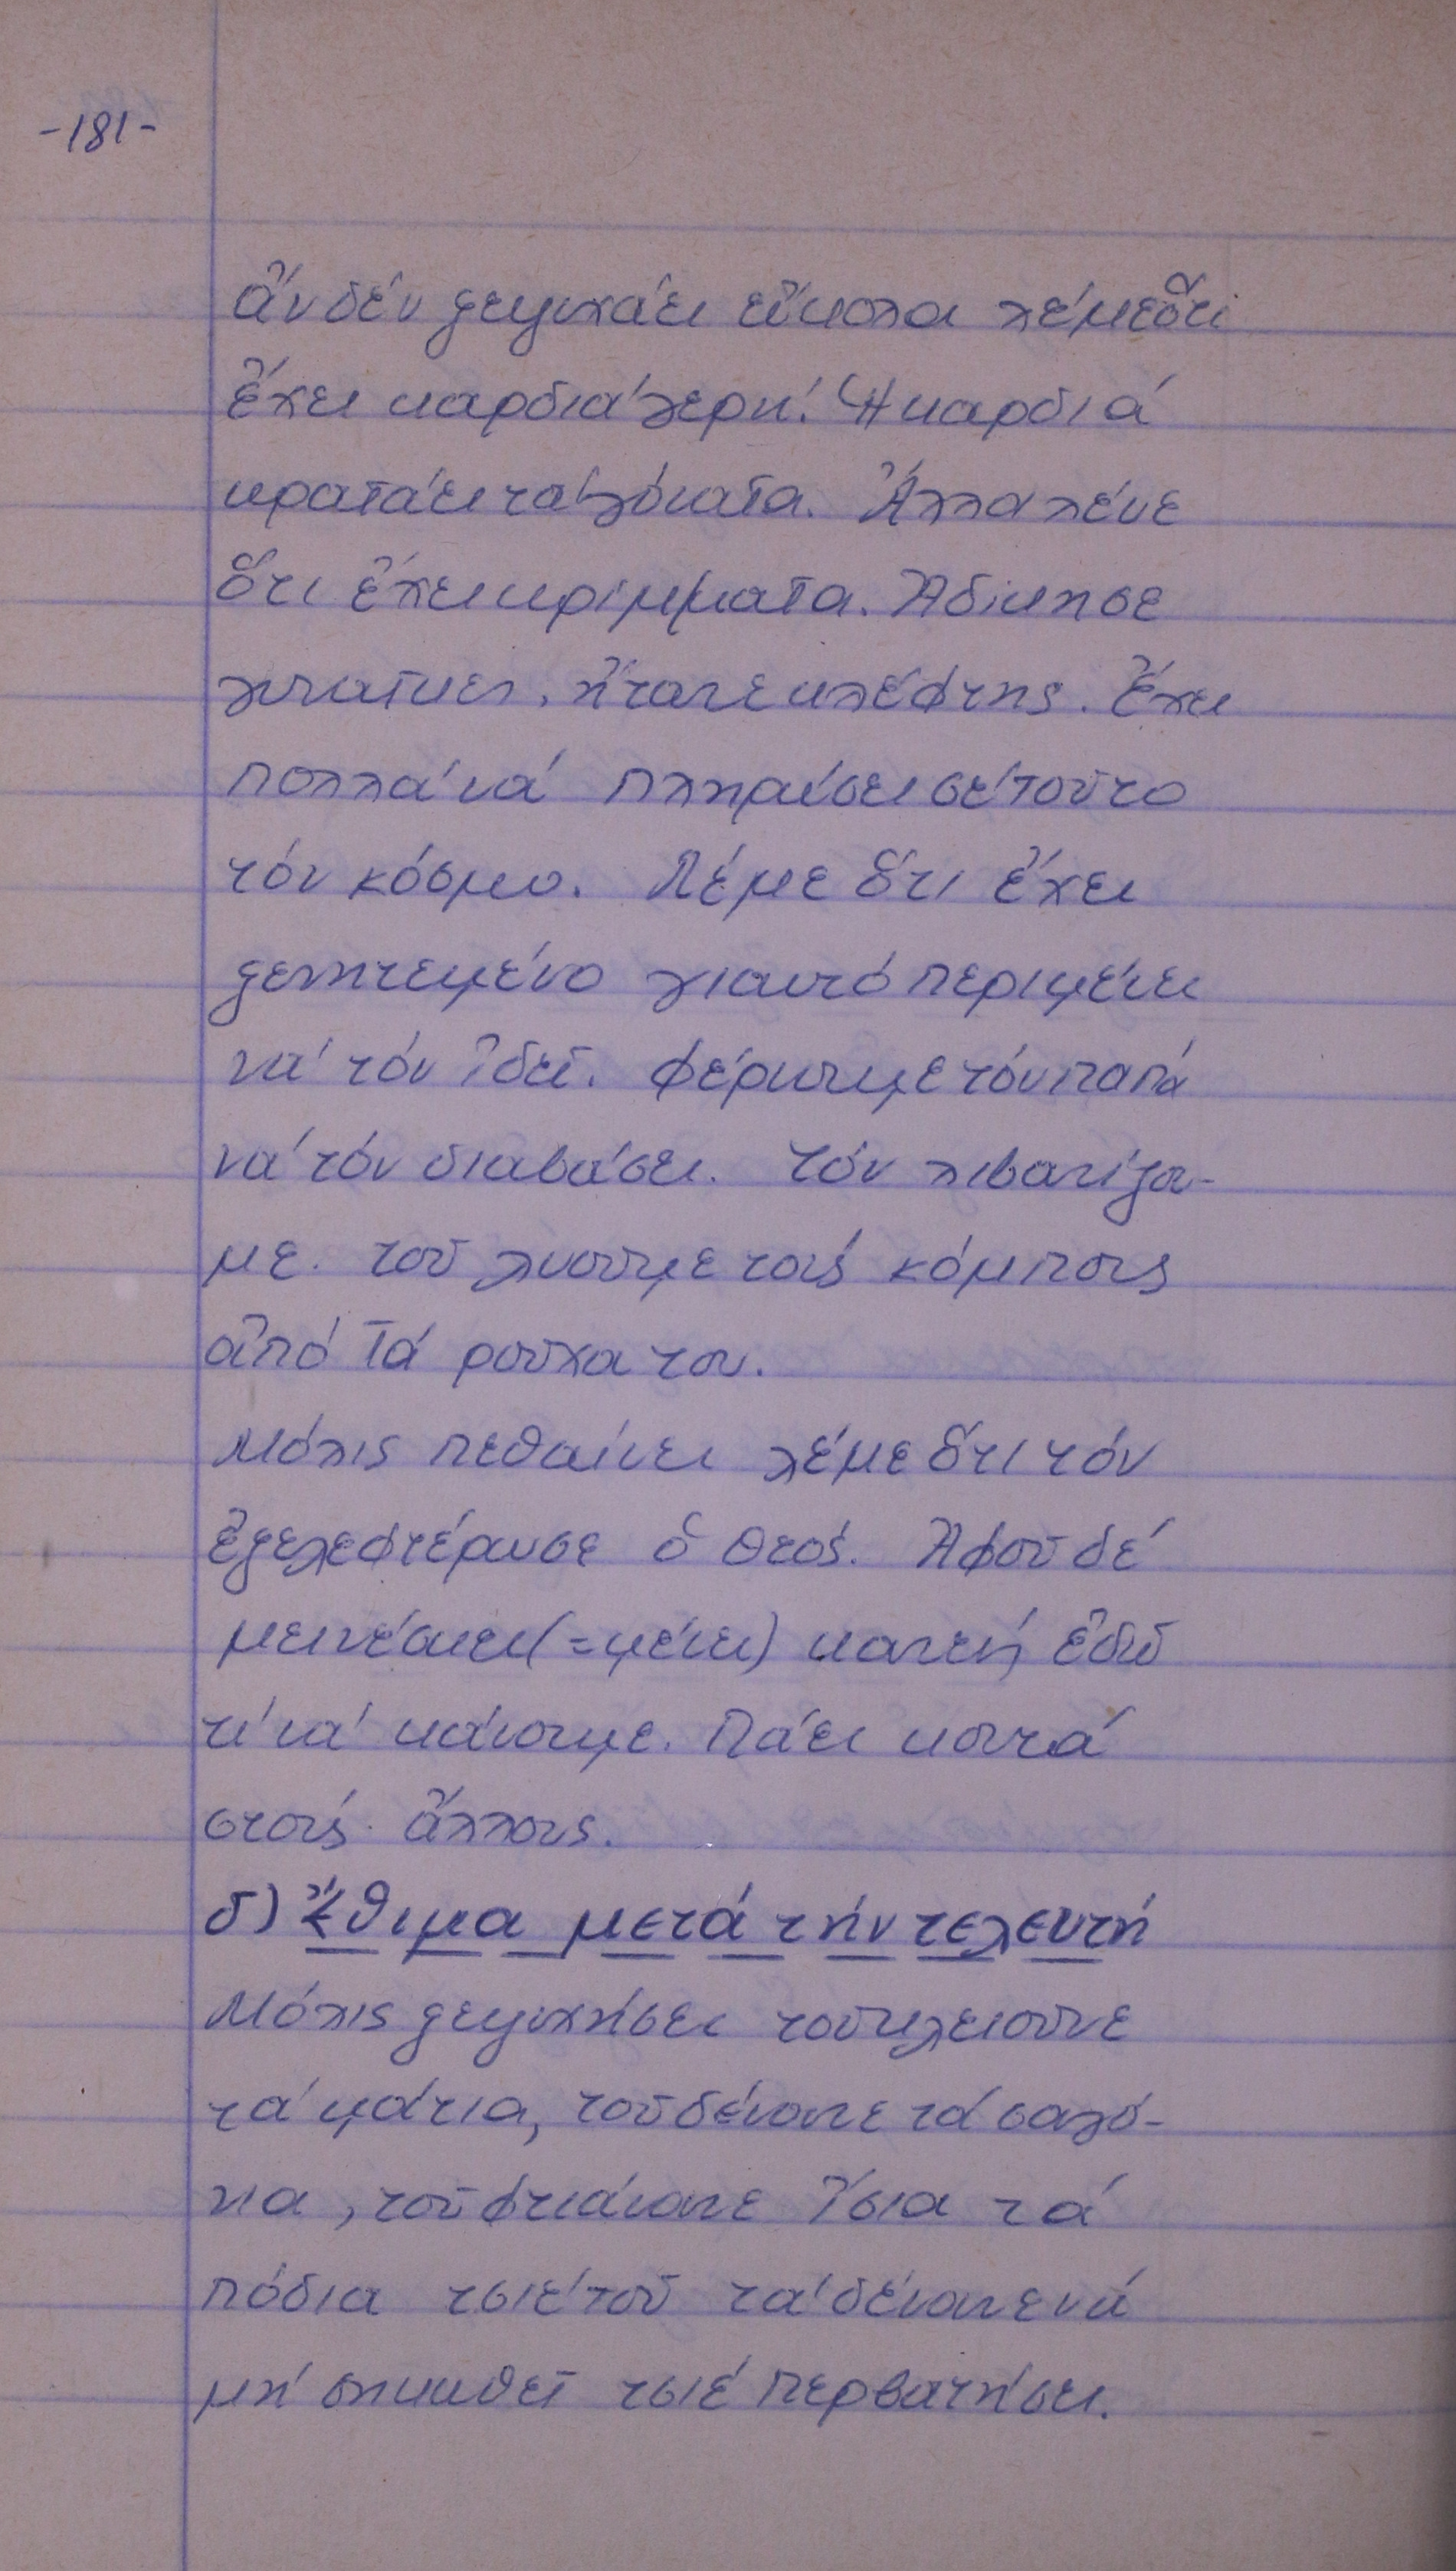 -181-
ἄν δέν ξεψυχάει εὔκολα λέμε ὅτι
ἔχει καρδιά γερή. Ἡ καρδιά
κρατάει τά γόνατα. Ἄλλα λένε
ὅτι ἔχει κρίμματα. Ἀδίκησε
γυναῖκες, ἤτανε κλέφτης. Ἔχει
πολλά νά πληρώσει σέ τοῦτο
τόν κόσμο. Λέμε ὅτι ἔχει
ξενητεμένο γιαυτό περιμένει
νά τόν ἰδεῖ. Φέρνουμε τόν παπά
νά τόν διαβάσει. Τόν λιβανίζου-
με. τοῦ λυοῦμε τούς κόμπους
ἀπό τά ροῦχα του.
Μόλις πεθαίνει λέμε ὅτι τόν
ἐξελεφτέρωσε ὁ Θεός. Ἀφοῦ δέ
μεινέσκει (=μένει) κανείς ἐδῶ
τί νά κάνουμε. Πάει κοντά
στούς ἄλλους.
δ) Ἔθιμα μετά τήν τελευτή
Μόλις ξεψυχήσει τοῦ κλειοῦνε
τά μάτια, τοῦ δένουνε τά σαγό-
νια, τοῦ φτιάνουνε ἴσια τά
πόδια τσιέ τοῦ τά δένουνε νά
μή σηκωθεῖ τσιέ περβατήσει.